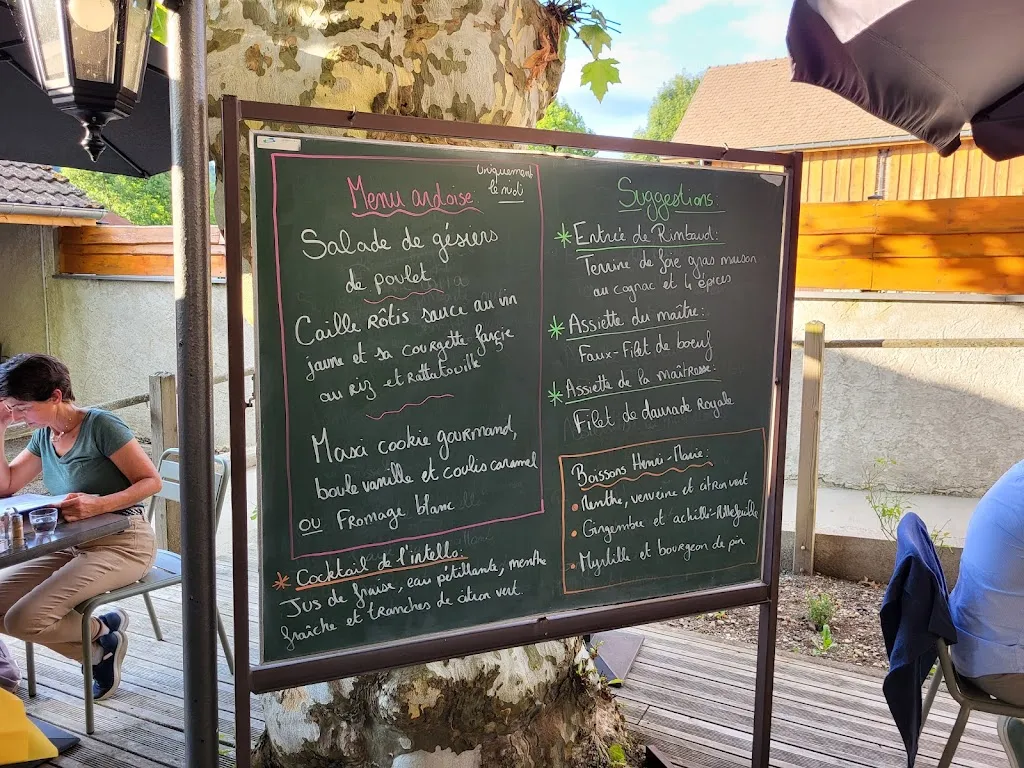 Menu ardoise
Uniquement
le midi
Salade de gésiers
de poulet
Caille Rôtis sauce au vin
jaune et sa courgette farçie
au riz et Rattatouille
Maxi cookie gourmand,
boule vanille et coulis caramel
ou Fromage blanc
* Cocktail de l'intello:
Jus de fraise, eau pétillante, menthe
fraîche et tranches de citron vert.
Suggestions:
* Entrée de Rimbaud:
Terrine de foie gras maison
au cognac et 4 épices
* Assiette du maître:
Faux-Filet de boeuf
* Assiette de la maîtresse:
Filet de daurade Royale
Boissons Henri-Marie:
• Menthe, verveine et citron vert
• Gingembre et achillée-Millefeuille
• Myrtille et bourgeon de pin